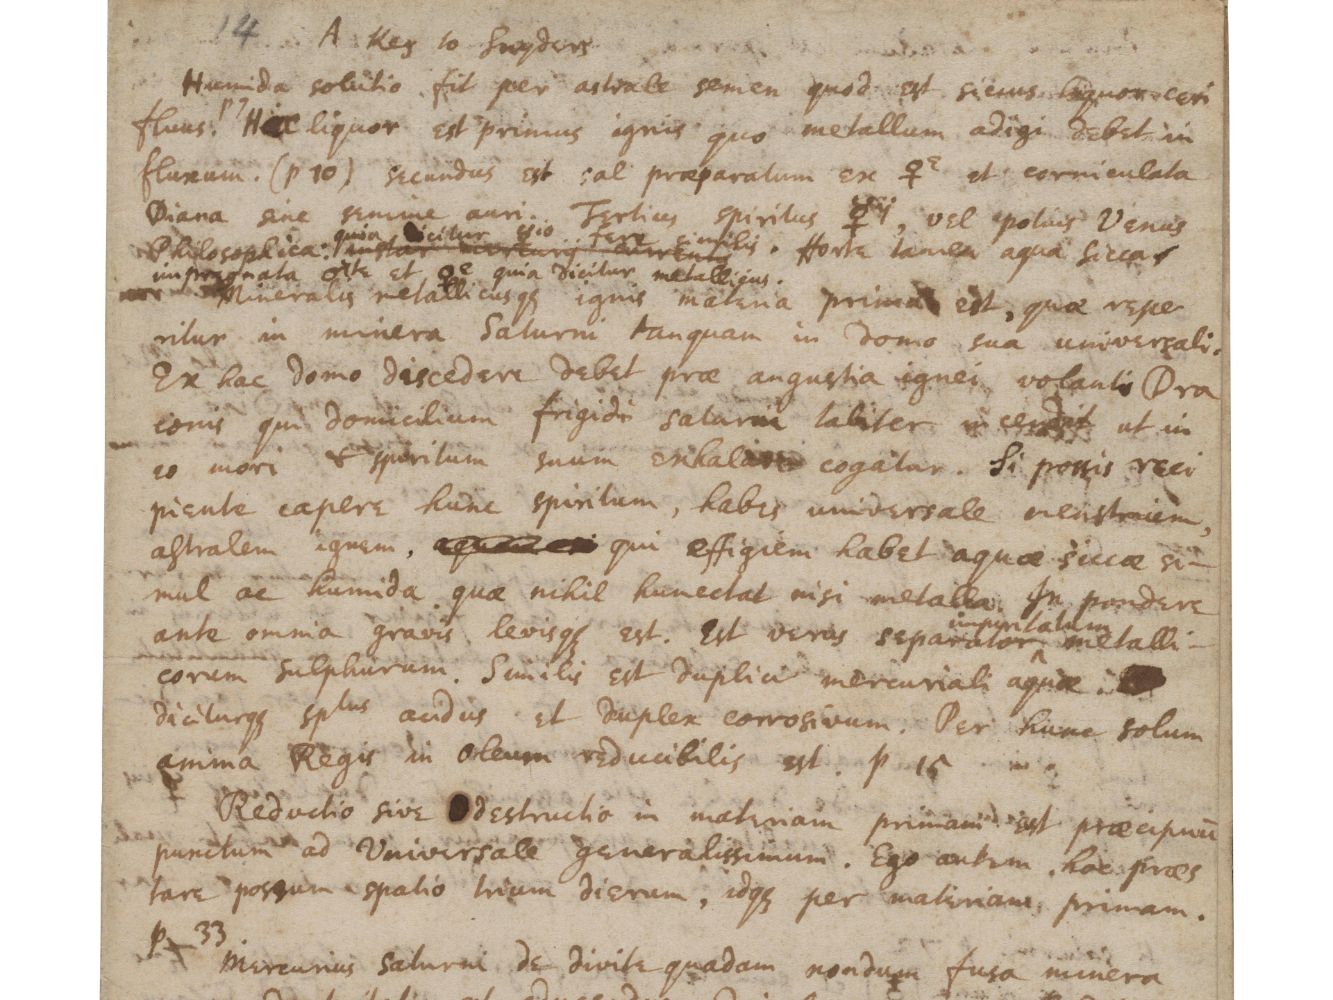 14
A Key to Snyders
Humida solutio fit per astrale semen quod est siccus liquor ceri
fluus. p 7 Hic liquor est primus ignis quo metallum adigi debet in
fluxum. (p 10) secundus est sal præparatum ex ♀e et corniculata
Diana sine semine auri. Tertius spiritus ☿ij, vel potius Venus
quia dicitur esio fere similis.
Philosophica: instar mercurij currentis. Horte tamen aqua sicca
impregnata ♂te et ♀e quia dicitur metallicus.
Mineralis metallicusq ignis materia prima est, quæ repe
ritur in minera Saturni tanquam in domo sua universali.
Ex hac domo discedere debet præ angustia ignei volantis Dra
conis qui domicilium frigidi saturni taliter incendit ut in
eo mori & spiritum suum exhalare cogatur. Si possis reci
piente capere hunc spiritum, habes universale menstruum,
astralem ignem, qui effigiem habet aquæ siccæ si-
mul ac humida quæ nihil humectat nisi metalla. In pondere
ante omnia gravis levisq est. Est verus separator metalli-
impuritatum
corum sulphurum. Similis est duplici mercuriali aquæ.
diciturq sptus acidus et duplex corrosivum. Per hunc solum
anima Regis in oleum reducibilis est. p 15
Reductio sive destructio in materiam primam est præcipuū
punctum ad Universale generalissimum. Ego autem hac præs
tare possum spatio trium dierum, idq per materiam primam.
p 33
Mercurius Saturni de divite quadam nondum fusa minera